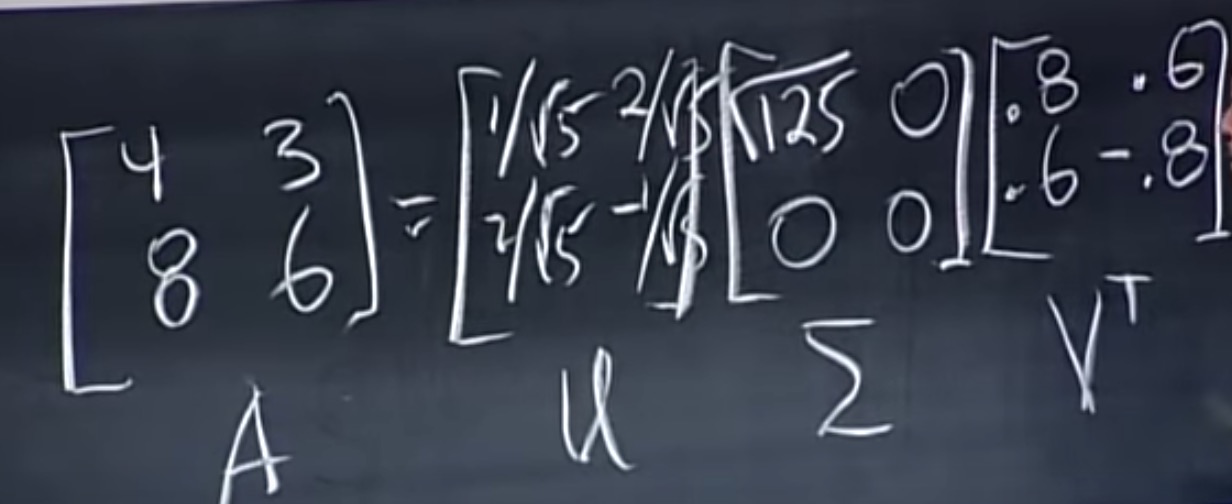 [4 3; 8 6] = [1/√5 2/√5; 2/√5 -1/√5] [√125 0; 0 0] [.8 .6; .6 -.8]
A U Σ V^T